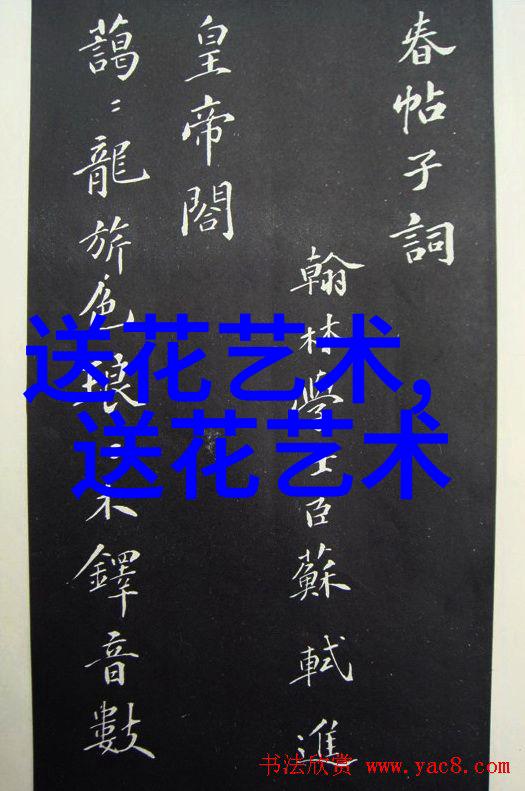 春帖子詞
翰林學士臣蘇軾進
皇帝閤
藹〻龍旂色琅〻木鐸音數
送花艺术,
送花艺术
书法欣赏 www.yac8.com